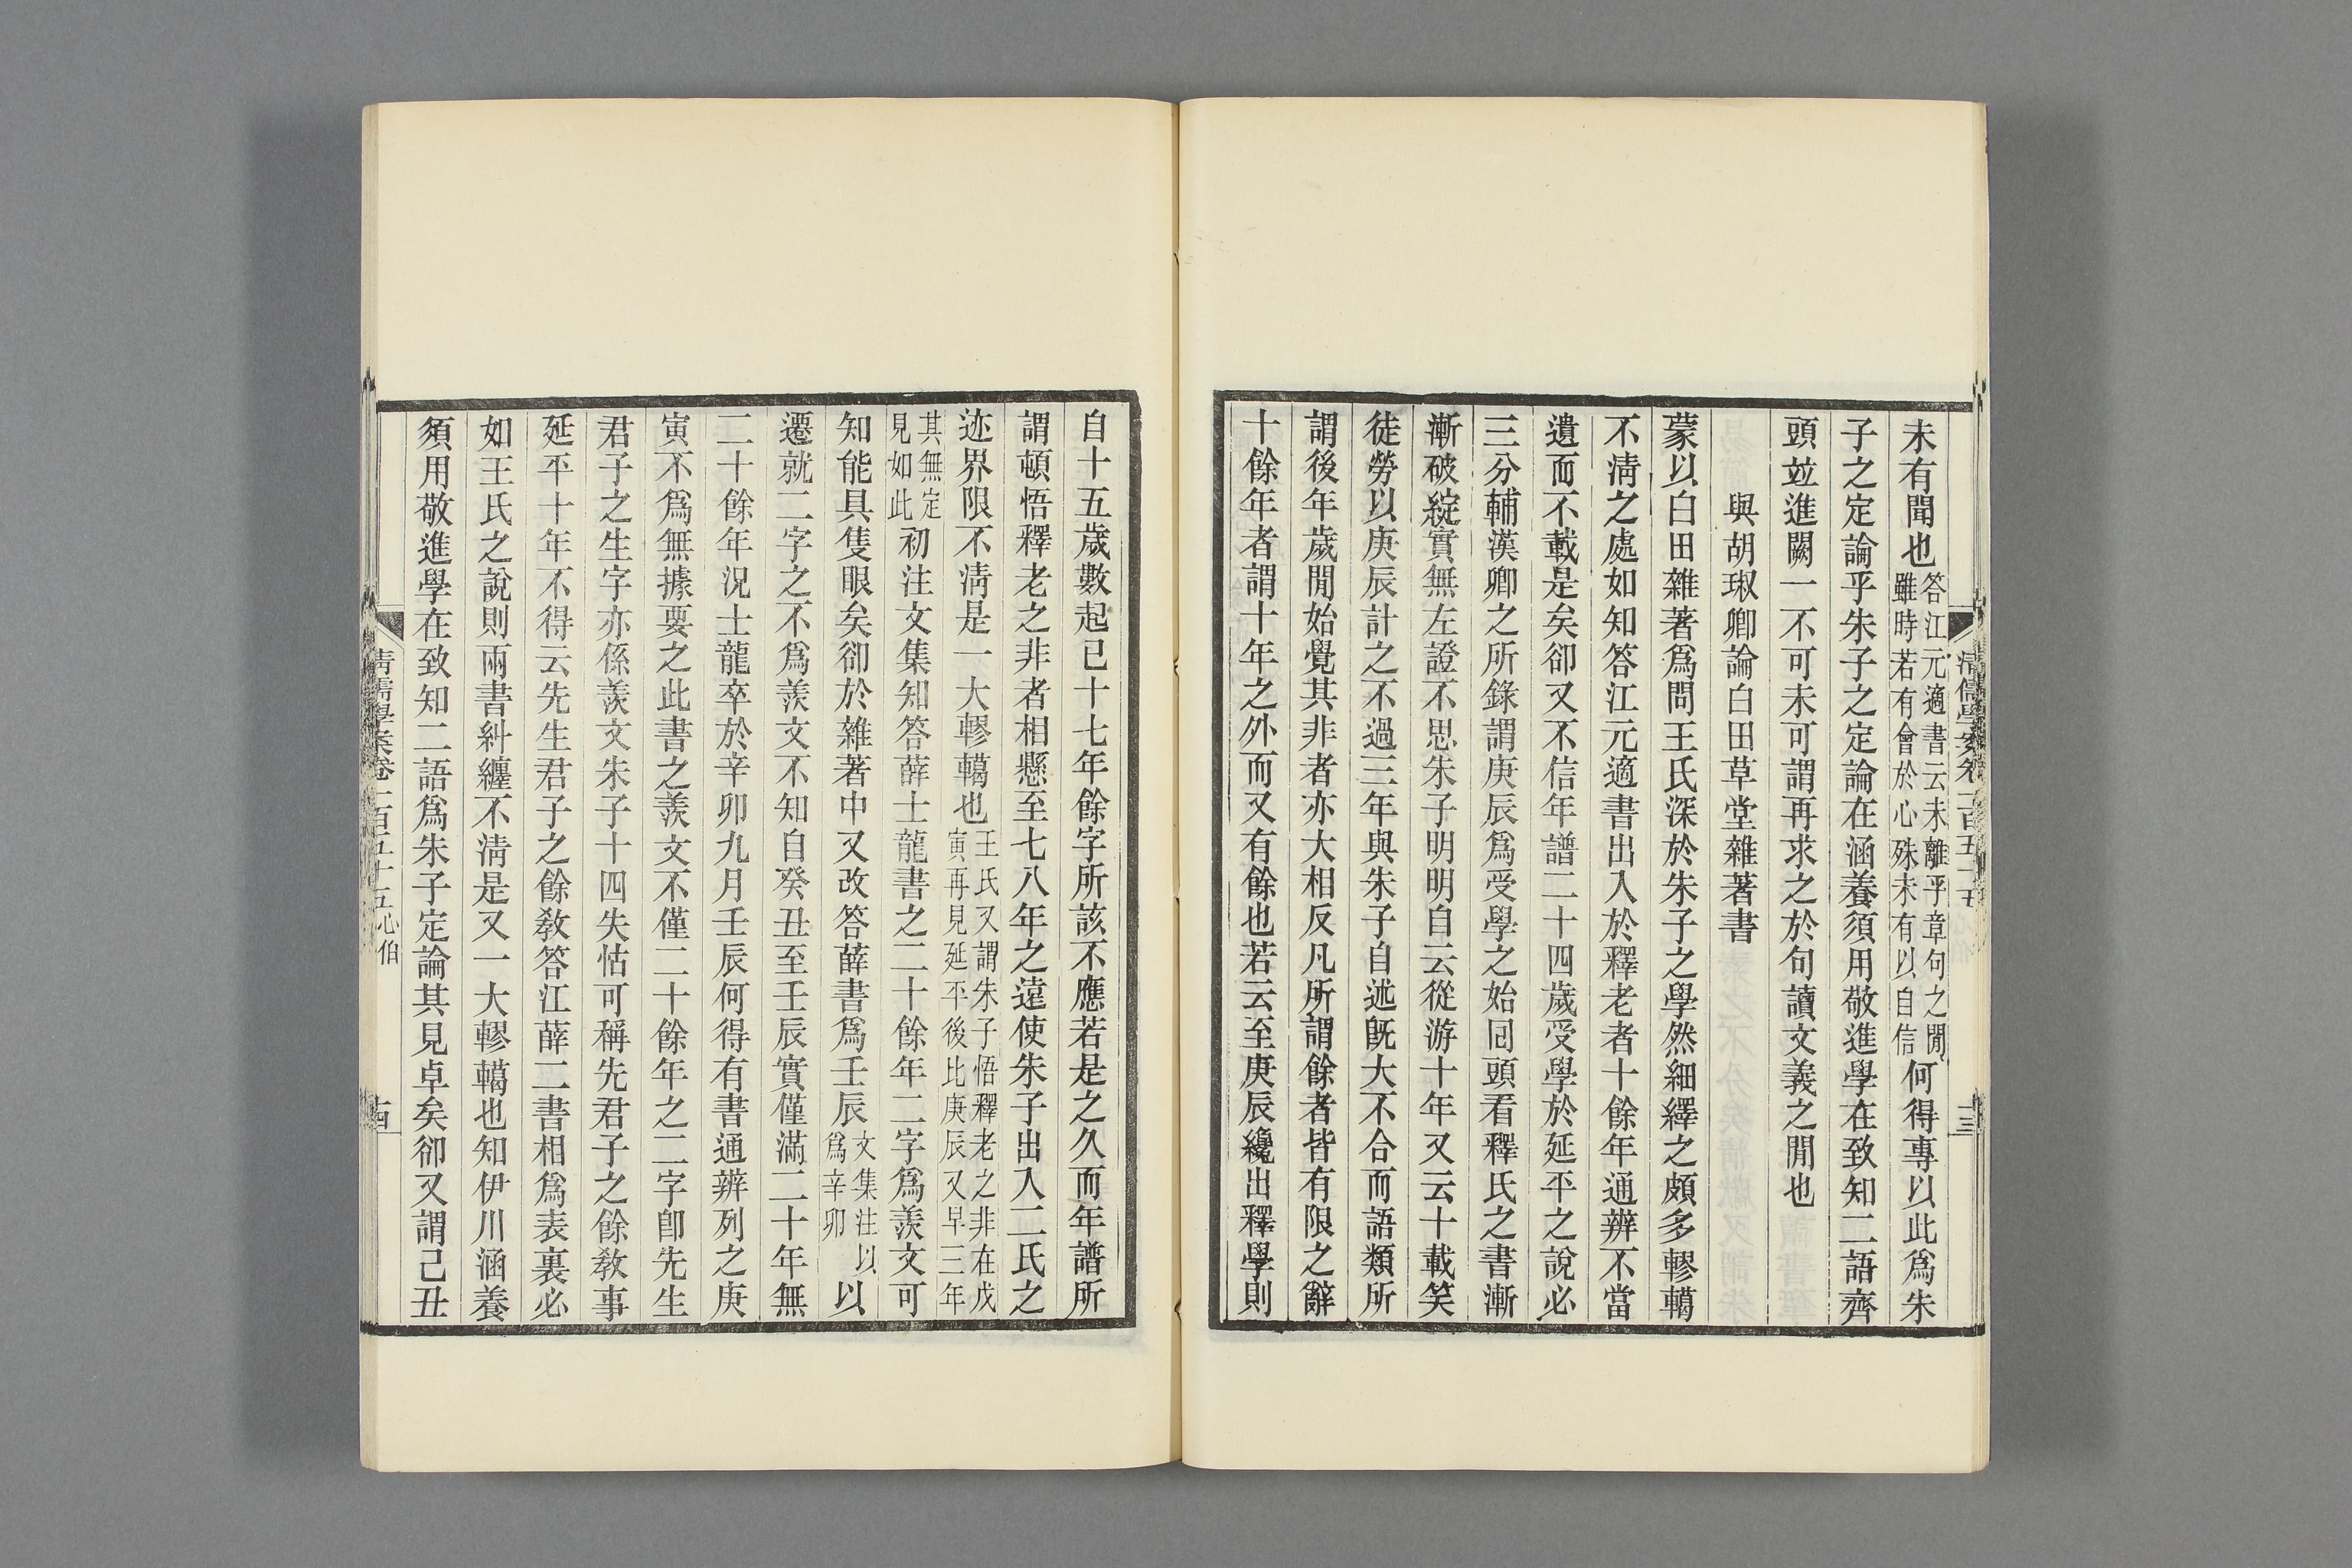 清儒學案卷二百五十五
十三
未有聞也答江元適書云未離乎章句之閒雖時若有會於心殊未有以自信何得專以此爲朱
子之定論乎朱子之定論在涵養須用敬進學在致知二語齊
頭竝進闕一不可未可謂再求之於句讀文義之閒也
與胡琡卿論白田草堂雜著書
蒙以白田雜著爲問王氏深於朱子之學然細繹之頗多轇轕
不淸之處如知答江元適書出入於釋老者十餘年通辨不當
遺而不載是矣卻又不信年譜二十四歲受學於延平之說必
三分輔漢卿之所錄謂庚辰爲受學之始回頭看釋氏之書漸
漸破綻實無左證不思朱子明明自云從游十年又云十載笑
徒勞以庚辰計之不過三年與朱子自述旣大不合而語類所
謂後年歲閒始覺其非者亦大相反凡所謂餘者皆有限之辭
十餘年者謂十年之外而又有餘也若云至庚辰纔出釋學則
自十五歲數起已十七年餘字所該不應若是之久而年譜所
謂頓悟釋老之非者相懸至七八年之遠使朱子出入二氏之
迹界限不淸是一大轇轕也王氏又謂朱子悟釋老之非在戊寅再見延平後比庚辰又早三年
其無定見如此初注文集知答薛士龍書之二十餘年二字爲羨文可
知能具隻眼矣卻於雜著中又改答薛書爲壬辰文集注以爲辛卯以
遷就二字之不爲羨文不知自癸丑至壬辰實僅滿二十年無
二十餘年況士龍卒於辛卯九月壬辰何得有書通辨列之庚
寅不爲無據要之此書之羨文不僅二十餘年之二字卽先生
君子之生字亦係羨文朱子十四失怙可稱先君子之餘敎事
延平十年不得云先生君子之餘敎答江薛二書相爲表裏必
如王氏之說則兩書糾纏不淸是又一大轇轕也知伊川涵養
須用敬進學在致知二語爲朱子定論其見卓矣卻又謂己丑
清儒學案卷二百五十五心伯
十四